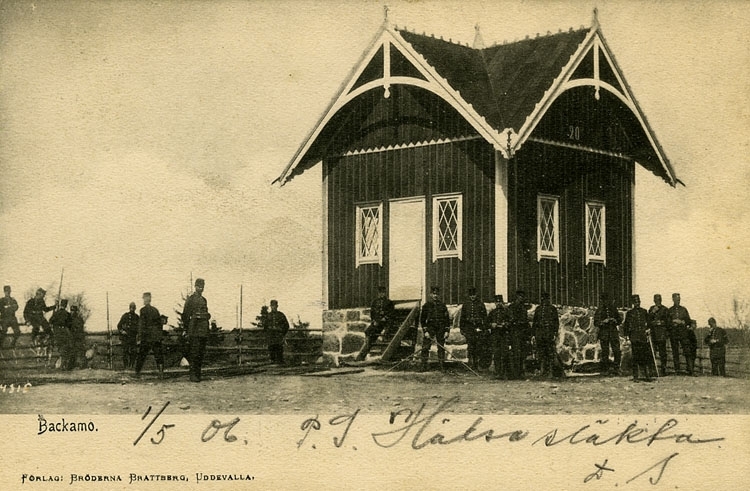 20
4315
Backamo. 1/5 06. P. S. Hälsa släkta.
D. S.
FÖRLAG: BRÖDERNA BRATTBERG, UDDEVALLA.